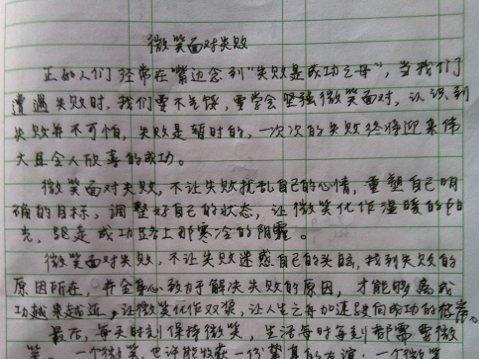 微笑面对失败
正如人们经常在嘴边念到“失败是成功之母”，当我们
遭遇失败时，我们要不气馁，要学会坚强微笑面对，认识到
失败并不可怕，失败是暂时的，一次次的失败终将迎来伟
大且令人欣喜的成功。
微笑面对失败，不让失败扰乱自己的心情，重塑自己明
确的目标，调整好自己的状态，让微笑化作温暖的阳
光，驱走成功路上那寒冷的阴霾。
微笑面对失败，不让失败迷惑自己的头脑，找到失败的
原因所在，并全身心致力于解决失败的原因，才能够离成
功越来越近，让微笑化作双桨，让人生之舟加速驶向成功的彼岸。
最后，每天时刻保持微笑，生活每时每刻都需要微
笑，一个微笑也许能收获一份